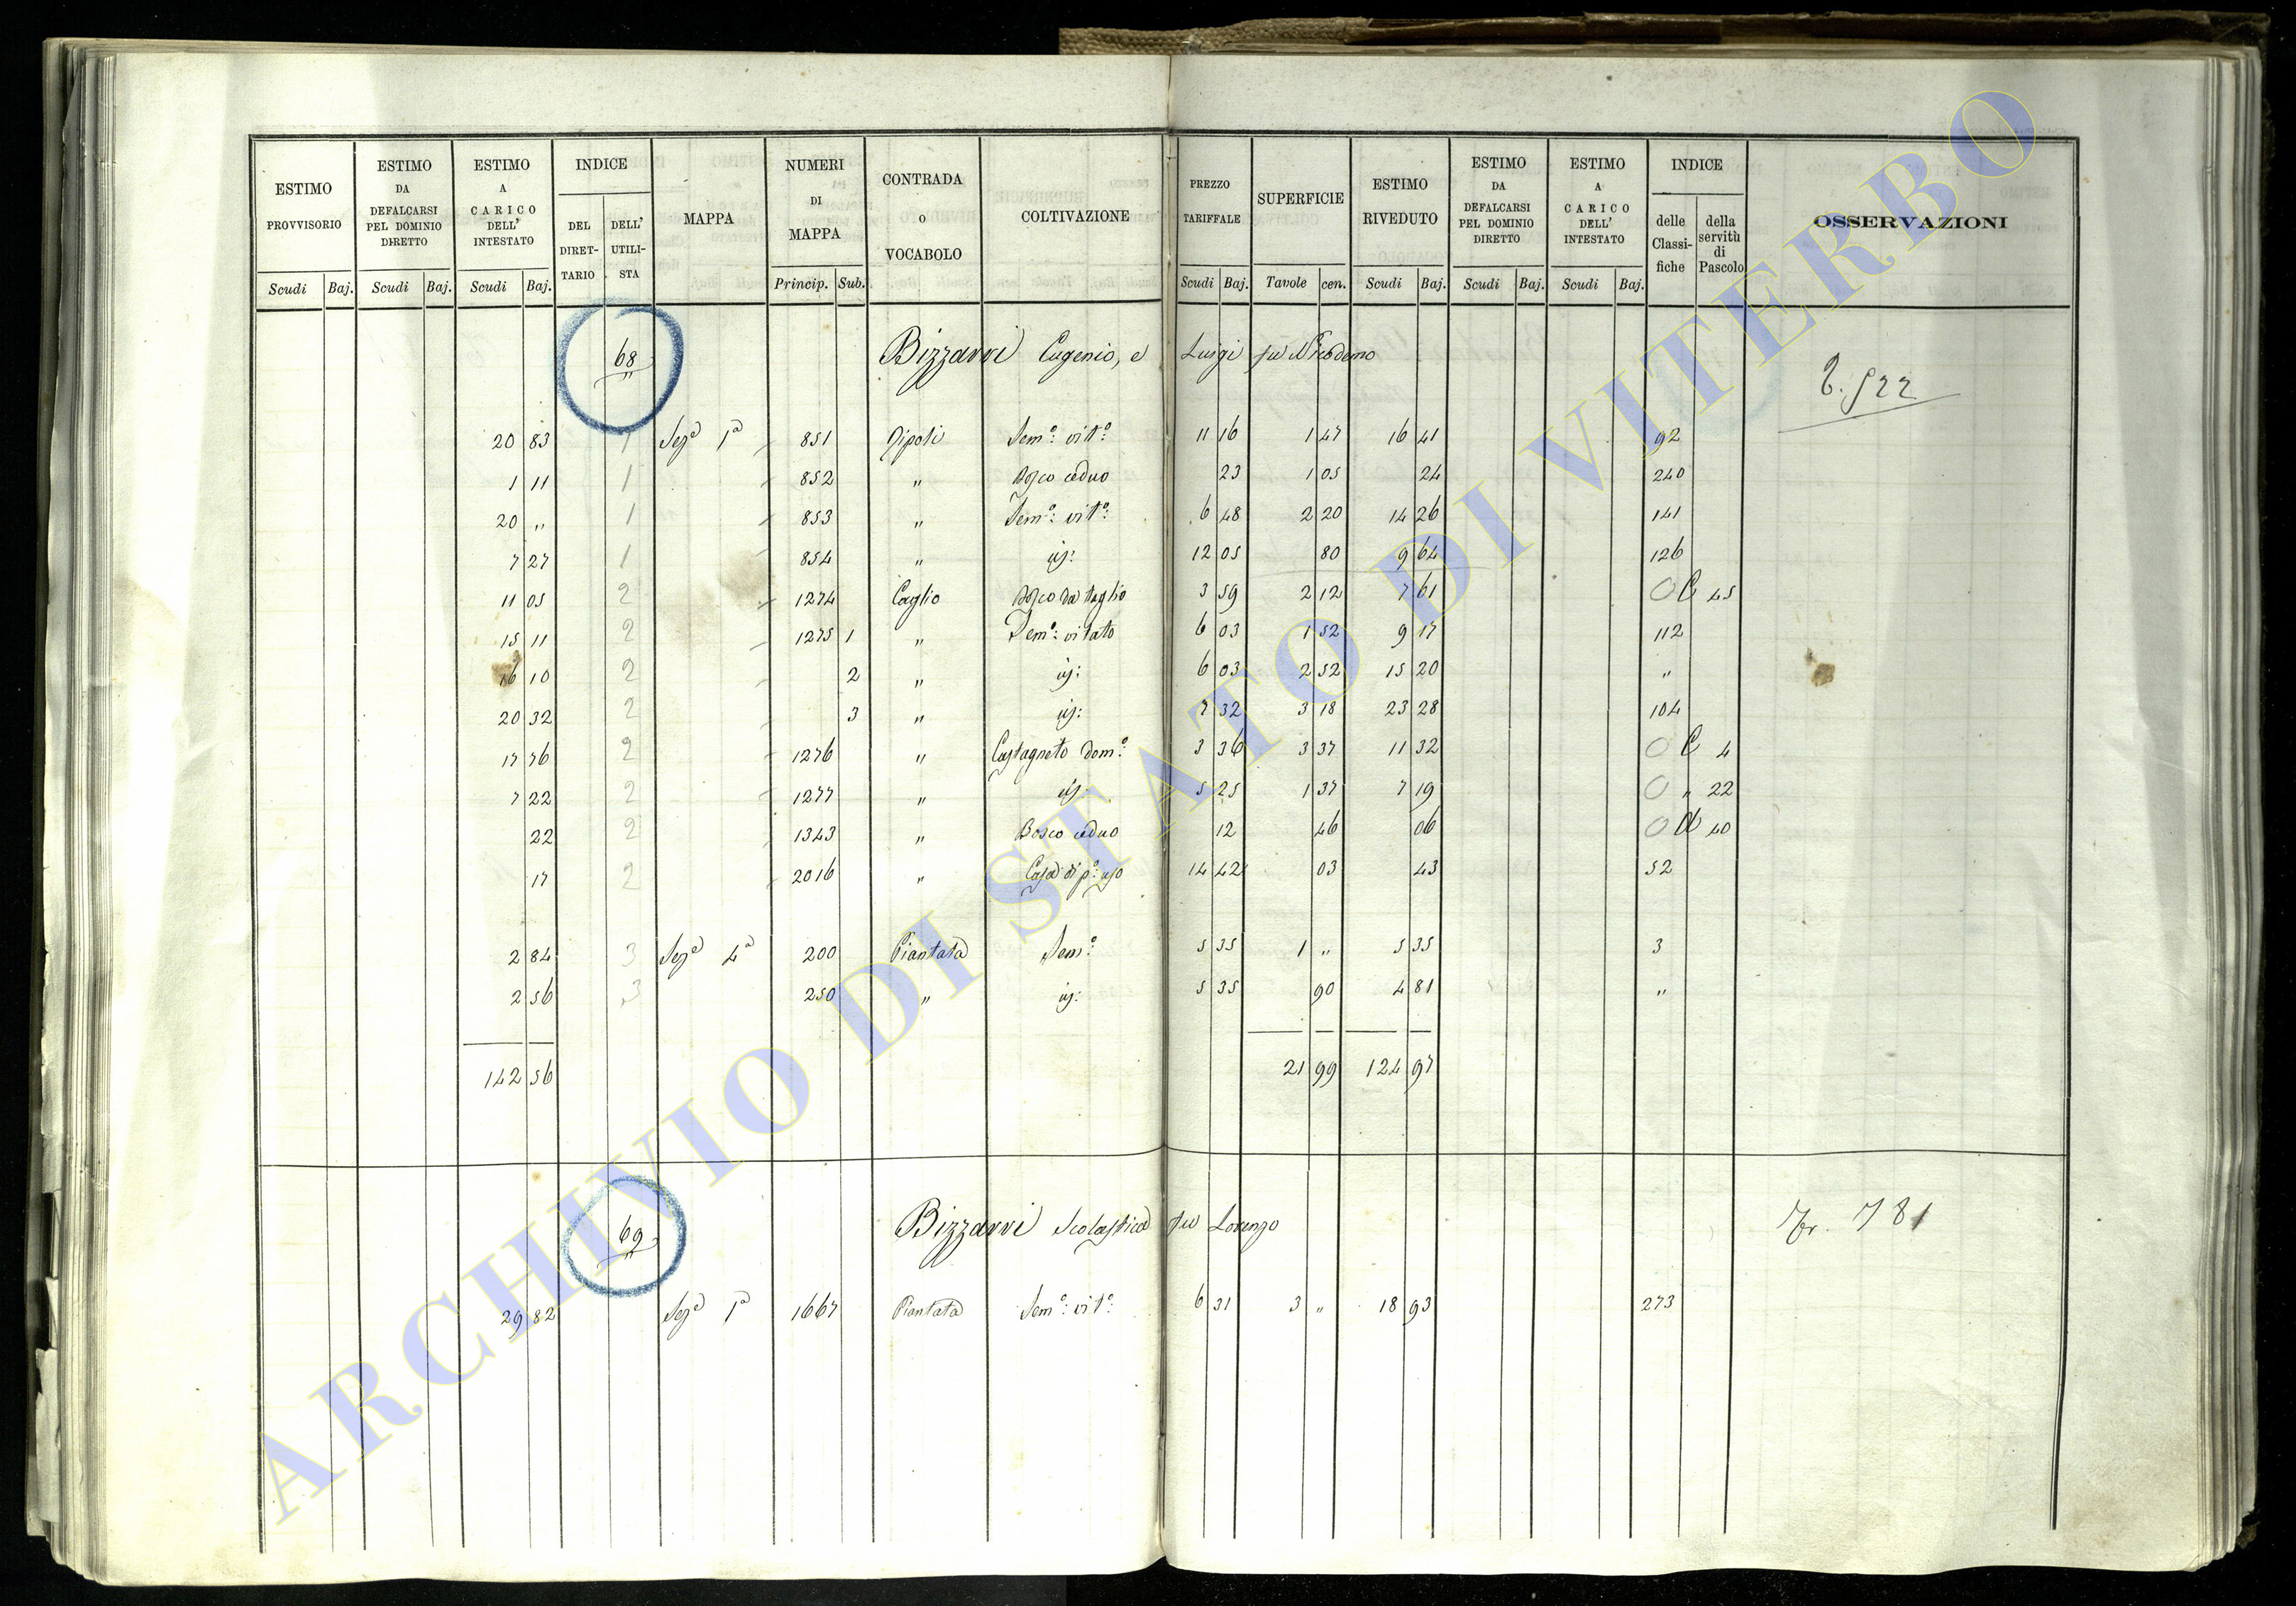 ESTIMO PROVVISORIO Scudi Baj.
ESTIMO DA DEFALCARSI PEL DOMINIO DIRETTO Scudi Baj.
ESTIMO A CARICO DELL' INTESTATO Scudi Baj.
INDICE DEL DIRETTARIO DELL' UTILISTA
MAPPA
NUMERI DI MAPPA Princip. Sub.
CONTRADA O VOCABOLO
COLTIVAZIONE
PREZZO TARIFFALE Scudi Baj.
SUPERFICIE Tavole cen.
ESTIMO RIVEDUTO Scudi Baj.
ESTIMO DA DEFALCARSI PEL DOMINIO DIRETTO Scudi Baj.
ESTIMO A CARICO DELL' INTESTATO Scudi Baj.
INDICE delle Classifiche della servitù di Pascolo
OSSERVAZIONI
68 Bizzarri Eugenio, e Luigi fu Nicodemo
20 83 1 Sezª 1ª 851 Ripoli Semº: vitº: 11 16 1 47 16 41 92
1 11 1 852 " Bosco ceduo 23 1 05 24 240
20 " 1 853 " Semº: vitº: 6 48 2 20 14 26 141
7 27 1 854 " 12 05 80 9 64 126
11 05 2 1274 Caglio Bosco da taglio 3 59 2 12 7 61 0 C 45
15 11 2 1275 1 " Semº: vitato 6 03 1 52 9 17 112
16 10 2 2 " 6 03 2 52 15 20 "
20 32 2 3 " 7 32 3 18 23 28 104
17 76 2 1276 " Castagneto domº: 3 36 3 37 11 32 0 C 4
7 22 2 1277 " 5 25 1 37 7 19 0 " 22
22 2 1343 " Bosco ceduo 12 46 06 0 40
17 2 2016 " Casa di pº: uso 14 42 03 43 52
2 84 3 Sezª 4ª 200 Piantata Semº: 5 35 1 " 5 35 3
2 56 3 250 " 5 35 90 4 81 "
142 56 21 99 124 97
69 Bizzarri Scolastica fu Lorenzo 781
29 82 Sezª 1ª 1667 Piantata Semº: vitº: 6 31 3 " 18 93 273
ARCHIVIO DI STATO DI VITERBO